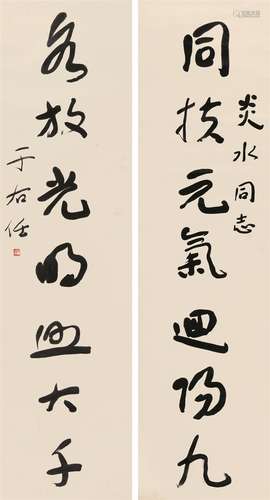 炎水同志
同扶元氣迴陽九
各放光明照大千
于右任